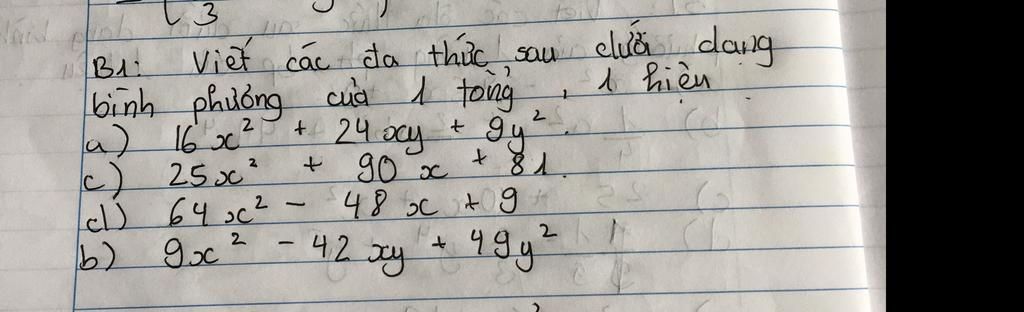 3
B1: Viết các đa thức sau dưới dạng
bình phương của 1 tổng, 1 hiệu
a) 16x² + 24xy + 9y².
c) 25x² + 90x + 81.
d) 64x² - 48x + 9
b) 9x² - 42xy + 49y²